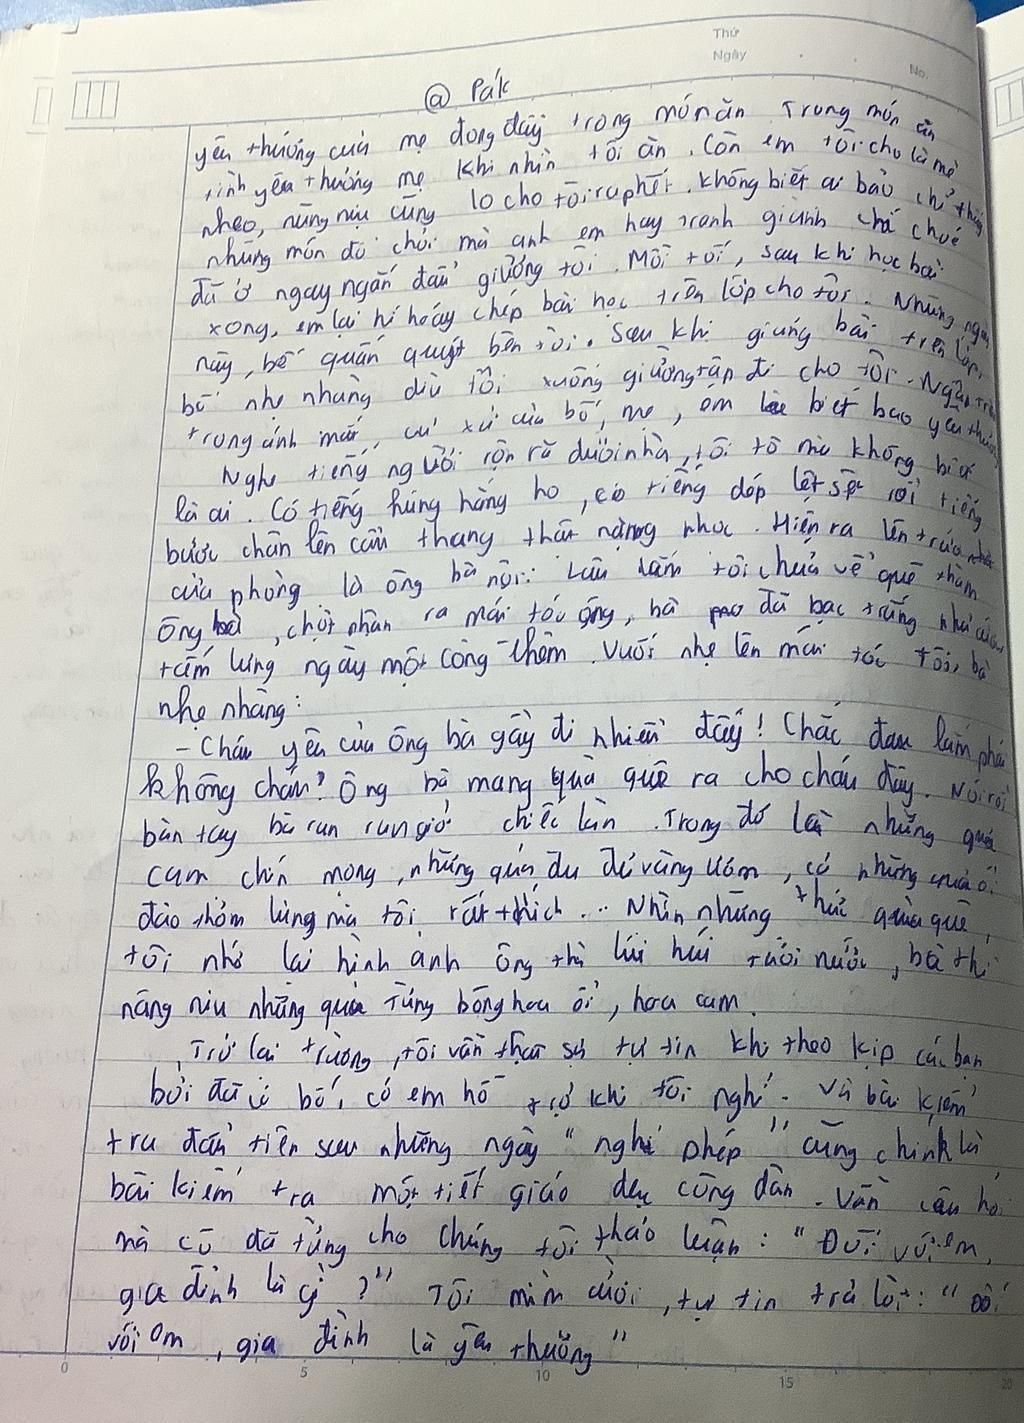 Thứ
Ngày
No.
@ Pák
yêu thương của mẹ đong đầy trong món ăn Trong món ăn
tình yêu thương mẹ khi nhìn tôi ăn. Còn em tôi cho là mè
nheo, nũng nịu cũng lo cho tôi ra phết. Không biết ai bảo chỉ thấy
những món đồ chơi mà anh em hay tranh giành chí choé
đã ở ngay ngắn đầu giường tôi. Mỗi tối, sau khi học bài
xong, em lại hí hoáy chép bài học trên lớp cho tôi. Những ngày
này, bố quấn quýt bên tôi. Sau khi giảng bài trên lớp,
bố nhẹ nhàng dìu tôi xuống giường tập đi cho tôi. Ngập tràn
trong ánh mắt, cư xử của bố, mẹ, em là biết bao yêu thương
Nghe tiếng người rộn rã dưới nhà, tôi tò mò không biết
là ai. Có tiếng húng hắng ho, có tiếng dép lệt sệt rồi tiếng
bước chân lên cầu thang thật nặng nhọc. Hiện ra lên trước
cửa phòng là ông bà nội: Lâu lắm tôi chưa về quê thăm
Ông bà, chợt nhận ra mái tóc ông, bà đã bạc trắng như cước
tấm lưng ngày một còng thêm. Vuốt nhẹ lên mái tóc tôi, bà
nhẹ nhàng:
- Cháu yêu của Ông bà gầy đi nhiều đấy! Chắc đau lắm phải
không cháu? Ông bà mang quà quê ra cho cháu đây. Nói rồi
bàn tay bà run run giở chiếc làn. Trong đó là những quả
cam chín mọng, những quả đu đủ vàng ươm, có những quả ổi
đào thơm lừng mà tôi rất thích... Nhìn những thức quà quê,
tôi nhớ lại hình ảnh ông thì lúi húi tưới nước, bà thì
nâng niu những quả từng bông hoa ổi, hoa cam.
Trở lại trường, tôi vẫn thật sự tự tin khi theo kịp các bạn
bởi đã có bố, có em hỗ trợ khi tôi nghỉ. Và bài kiểm
tra đầu tiên sau những ngày "nghỉ phép" cũng chính là
bài kiểm tra một tiết giáo dục công dân. Vẫn câu hỏi
mà cô đã từng cho chúng tôi thảo luận: "Đối với em,
gia đình là gì?" Tôi mỉm cười, tự tin trả lời: "Đối
với em, gia đình là yêu thương"
0 5 10 15 20